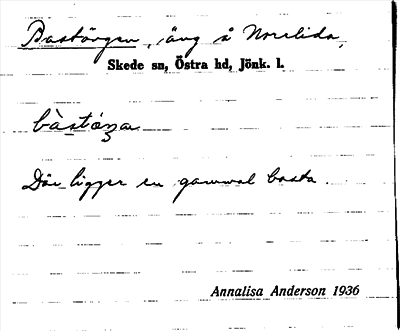 Bastängen, äng å Norrlida,
Skede sn, Östra hd, Jönk. l.
bàstáŋa
Där ligger en gammal basta.
Annalisa Anderson 1936